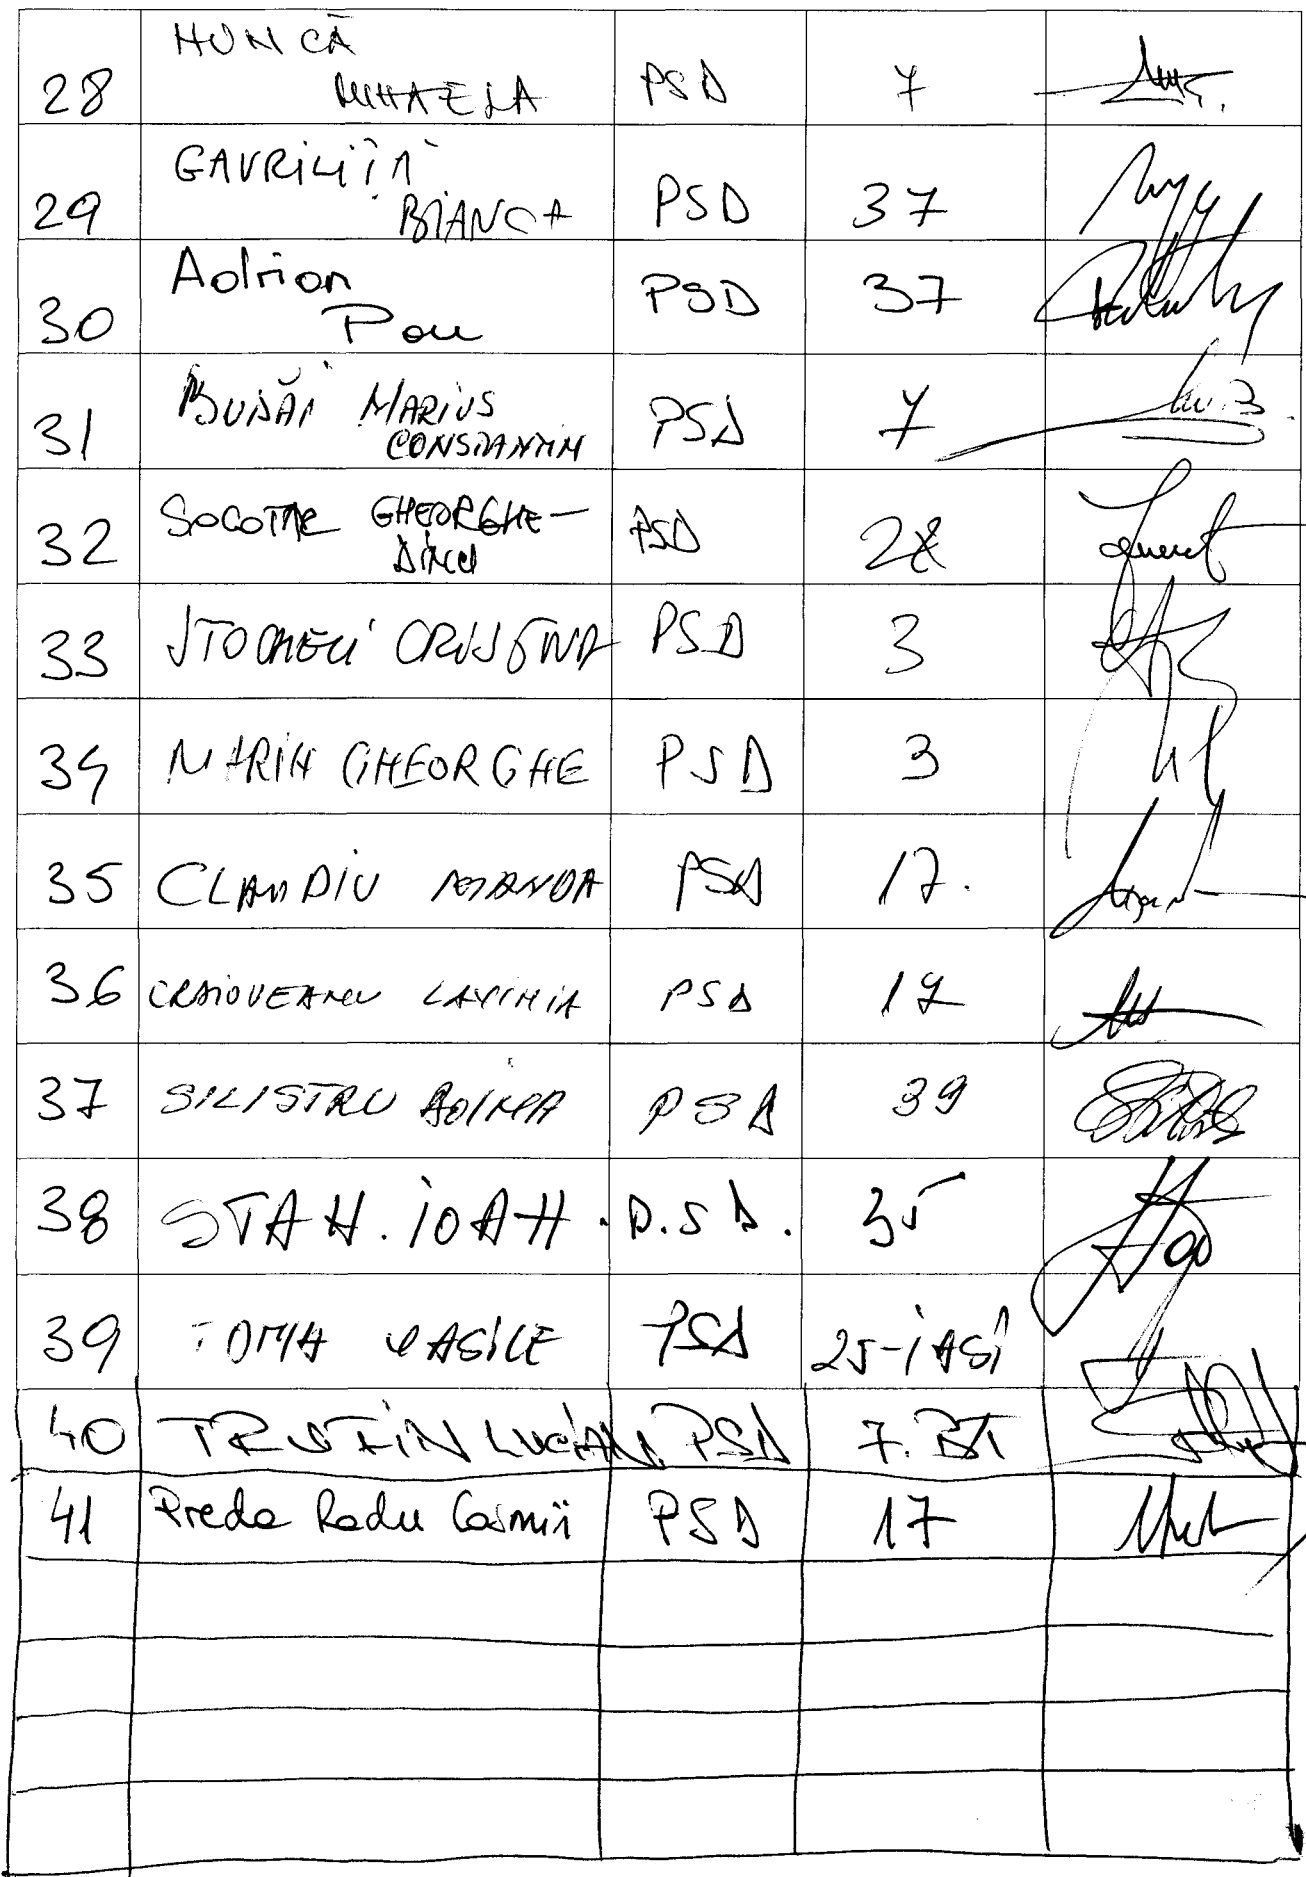 28 HUNCĂ MIHAELA PSD 7
29 GAVRILIȚĂ BIANCA PSD 37
30 Adrian Pau PSD 37
31 BUDĂI MARIUS CONSTANTIN PSD 7
32 SOCOTAR GHEORGHE-DINU PSD
33 STOCHECI CRISTINA PSD 3
34 MARIN GHEORGHE PSD 3
35 CLAUDIU MANDA PSD 17.
36 CRAIOVEANU LAVINIA PSD 17
37 SILISTRU DOINA PSD 39
38 STAN. IOAN. P.S.D. 35
39 TOMA VASILE PSD 25-IAȘI
40 TRUFIN LUCIAN PSD 7. BT
41 Preda Radu Cosmin PSD 17